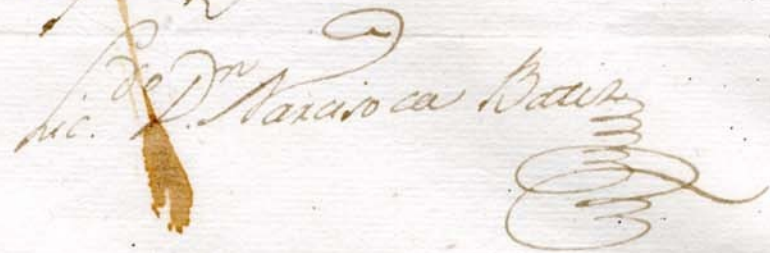 Lic.do Dn. Narciso de Batiz